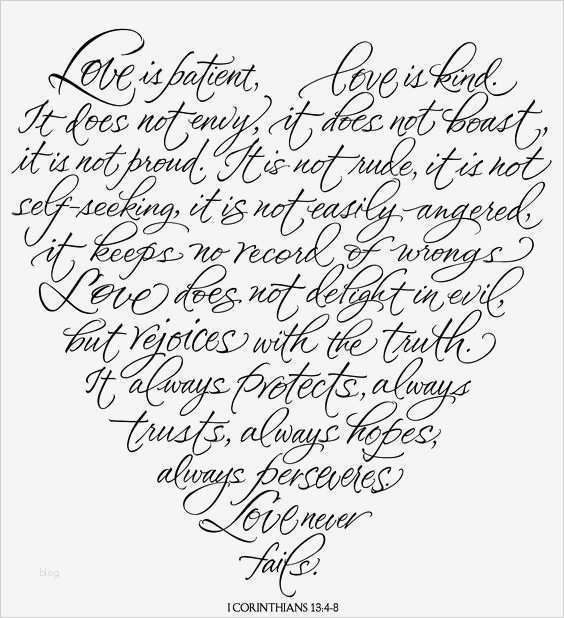 Love is patient, love is kind.
It does not envy, it does not boast,
it is not proud. It is not rude, it is not
self-seeking, it is not easily angered,
it keeps no record of wrongs
Love does not delight in evil,
but rejoices with the truth.
It always protects, always
trusts, always hopes,
always perseveres.
Love never
fails.
blog
I CORINTHIANS 13:4-8